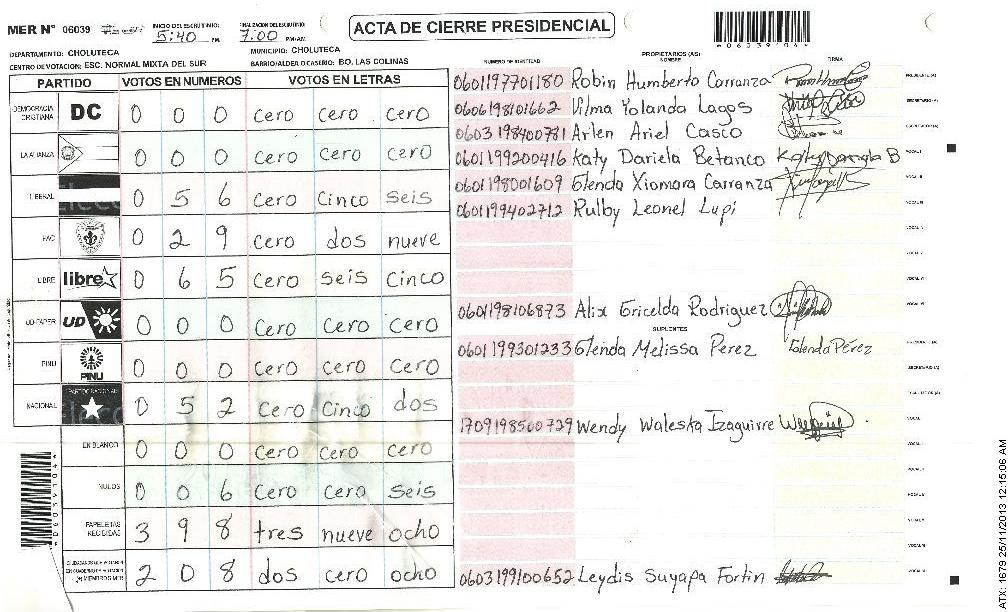 ACTA DE CIERRE PRESIDENCIAL
MER Nº 06039
INICIO DEL ESCRUTINIO: 5:40 PM.
FINALIZACION DEL ESCRUTINIO: 7:00 PM/AM.
*06039104*
DEPARTAMENTO: CHOLUTECA
MUNICIPIO: CHOLUTECA
CENTRO DE VOTACION: ESC. NORMAL MIXTA DEL SUR
BARRIO/ALDEA O CASERIO: BO. LAS COLINAS
PARTIDO VOTOS EN NUMEROS VOTOS EN LETRAS
DEMOCRACIA CRISTIANA DC 0 0 0 cero cero cero
LA ALIANZA 0 0 0 cero cero cero
LIBERAL 0 5 6 cero cinco seis
PAC 0 2 9 cero dos nueve
LIBRE libre 0 6 5 cero seis cinco
UD-FAPER UD 0 0 0 cero cero cero
PINU PINU 0 0 0 cero cero cero
NACIONAL 0 5 2 cero cinco dos
EN BLANCO 0 0 0 cero cero cero
NULOS 0 0 6 cero cero seis
PAPELETAS RECIBIDAS 3 9 8 tres nueve ocho
2 0 8 dos cero ocho
NUMERO DE IDENTIDAD
PROPIETARIOS (AS)
NOMBRE
FIRMA
0601197701180 Robin Humberto Carranza PRESIDENTE (A)
0606198101662 Vilma Yolanda Lagos SECRETARIO (A)
0603198400781 Arlen Ariel Casco ESCRUTADOR (A)
0601199200416 Katy Dariela Betanco Katy Dariela B VOCAL I
0601198001609 Glenda Xiomara Carranza VOCAL II
0601199402712 Rulby Leonel Lupi VOCAL III
0601198106873 Alix Gricelda Rodriguez
SUPLENTES
0601199301233 Glenda Melissa Perez Glenda Pérez PRESIDENTE (A)
SECRETARIO (A)
1709198500729 Wendy Waleska Izaguirre
0603199100652 Leydis Suyapa Fortin
*06039104*
ATX: 1679 25/11/2013 12:15:06 AM